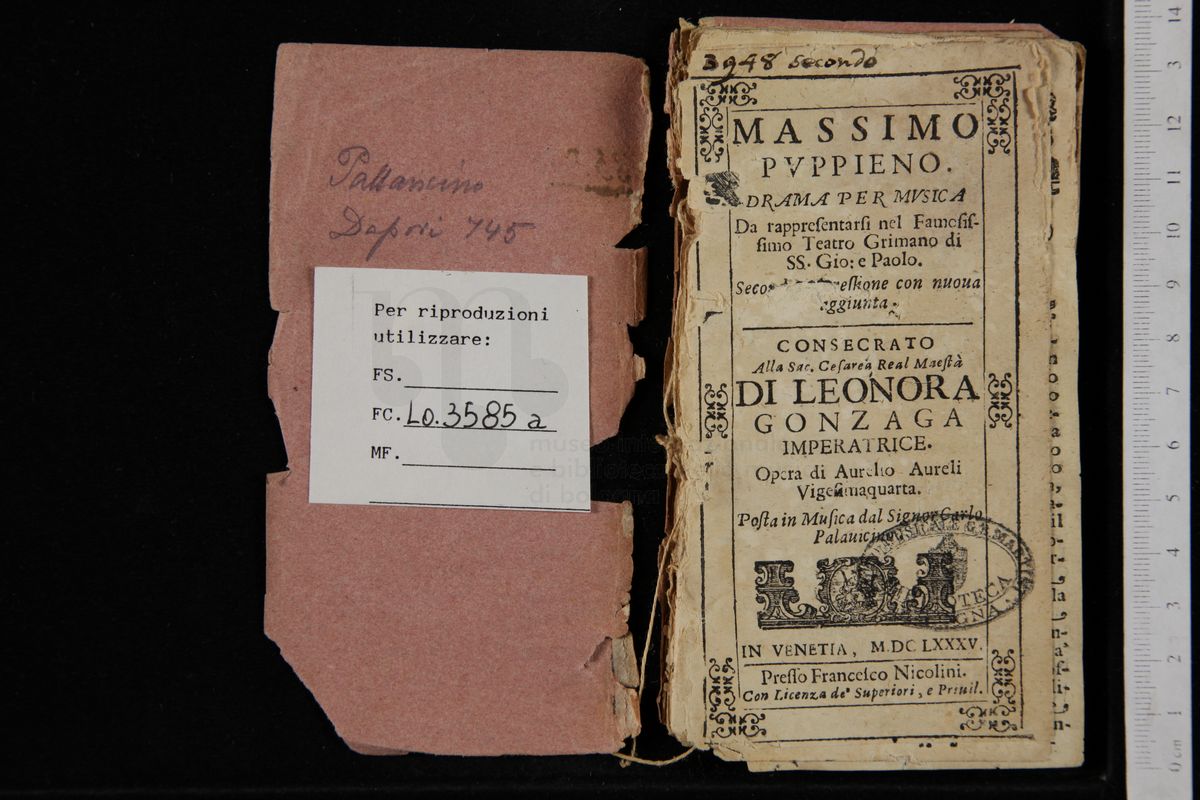 Pallavicino
Dapori 745
Per riproduzioni
utilizzare:
FS.
FC. Lo.3585 a
MF.
3948 secondo
MASSIMO
PVPPIENO.
DRAMA PER MVSICA
Da rappresentarsi nel Famosis-
simo Teatro Grimano di
SS. Gio: e Paolo.
con nuoua
aggiunta.
CONSECRATO
Alla Sac. Cesarea Real Maestà
DI LEONORA
GONZAGA
IMPERATRICE.
Opera di Aurelio Aureli
Vigesimaquarta.
Posta in Musica dal Signor Carlo
Palauicino
IN VENETIA, M.DC LXXXV.
Presso Francesco Nicolini.
Con Licenza de' Superiori, e Priuil.